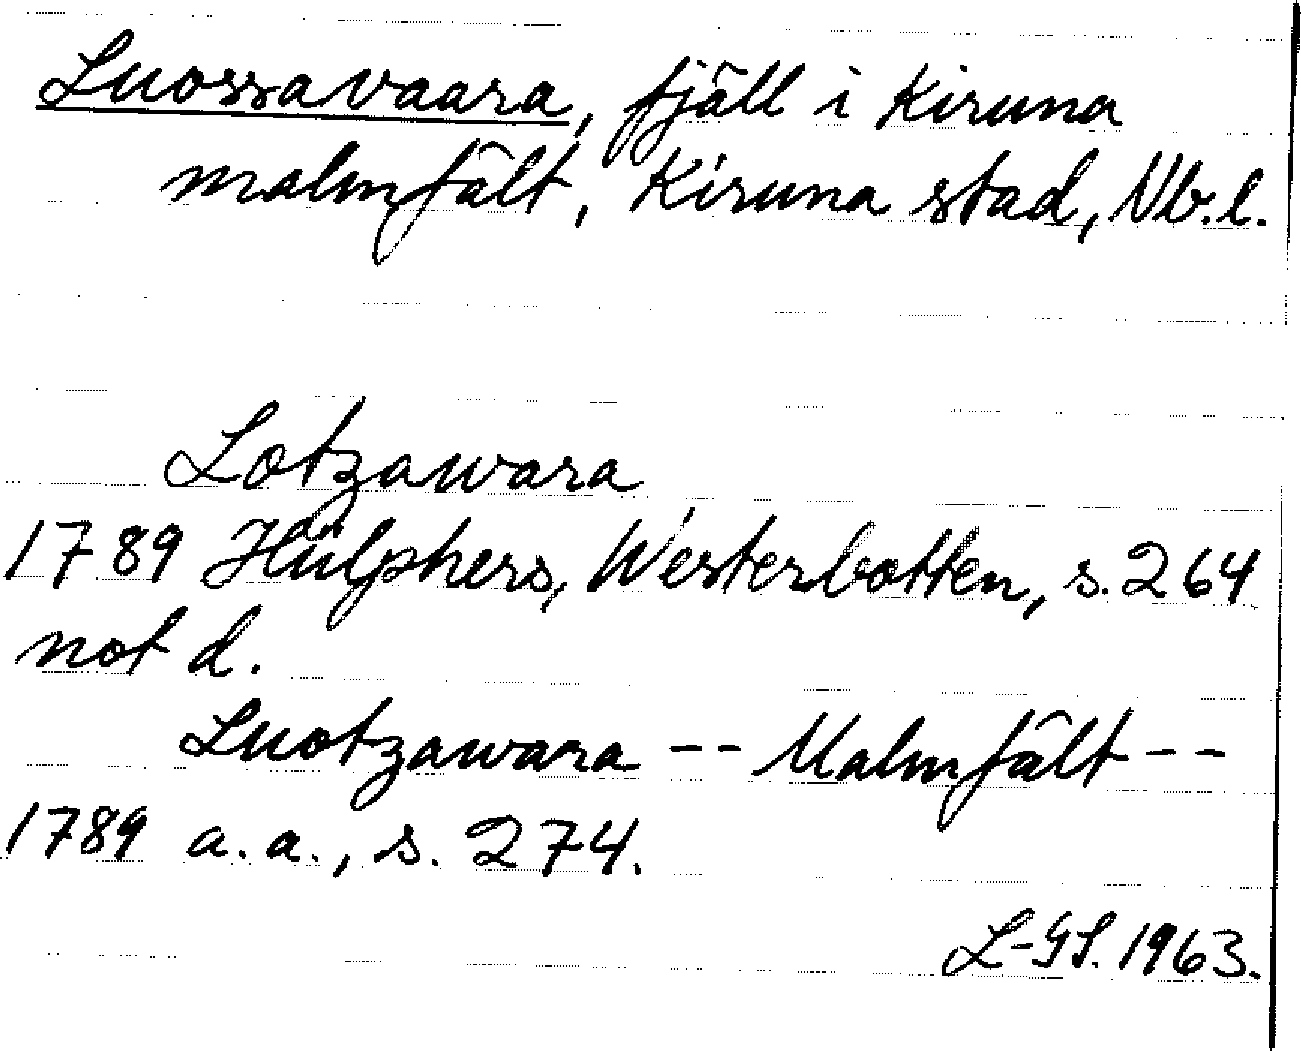 Luossavaara, fjäll i Kiruna
malmfält, Kiruna stad, Nb.l.
Lotzawara
1789 Hülphers, Westerbotten, s. 264
not d.
Luotzawara -- Malmfält --
1789 a.a., s. 274.
L-GS. 1963.